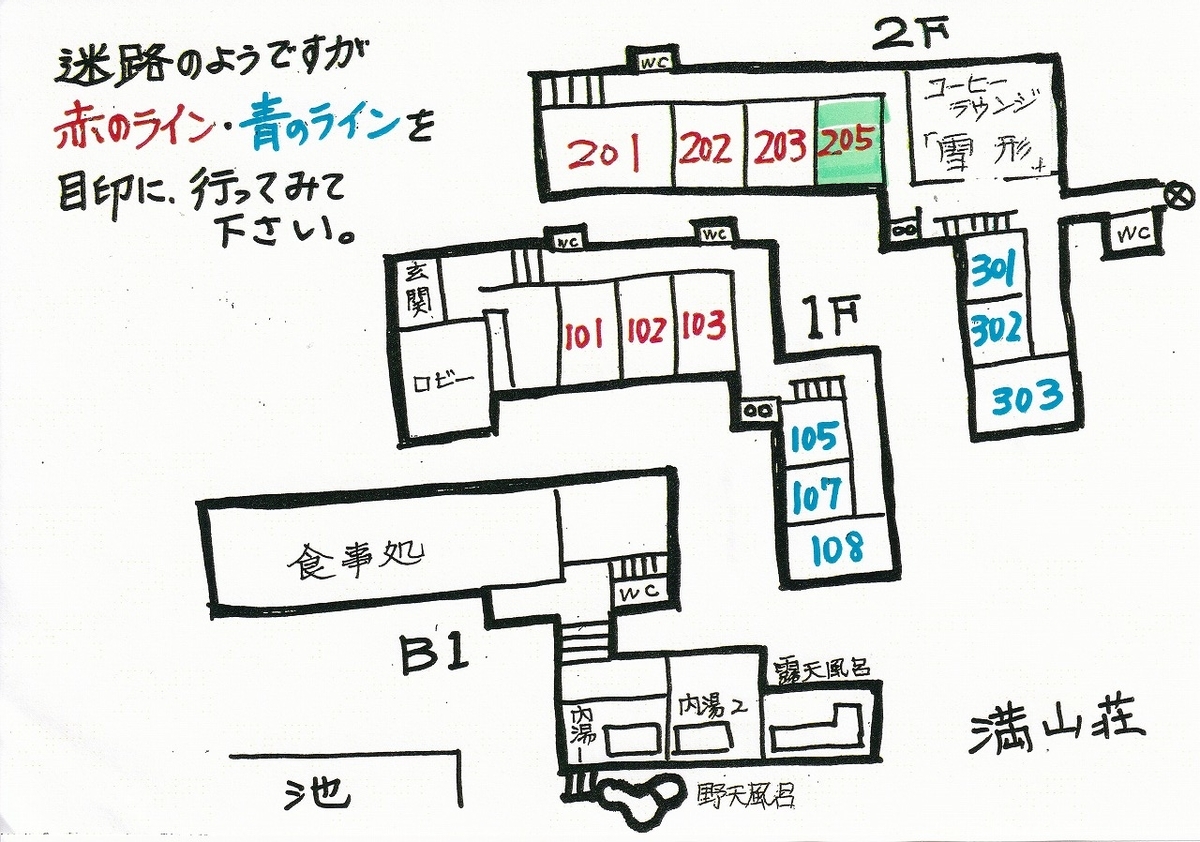 迷路のようですが
赤のライン・青のラインを
目印に、行ってみて
下さい。
2F
WC
201
202
203
205
コーヒー
ラウンジ
「雪形」
WC
301
302
303
1F
WC
WC
玄関
ロビー
101
102
103
105
107
108
B1
食事処
WC
内湯1
内湯2
露天風呂
野天風呂
池
満山荘